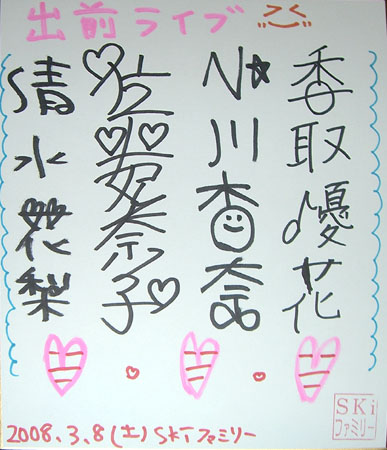 出前ライブ
香取優花
小川杏奈
奈子
清水花梨
SKi
ファミリー
2008.3.8(土) SKiファミリー